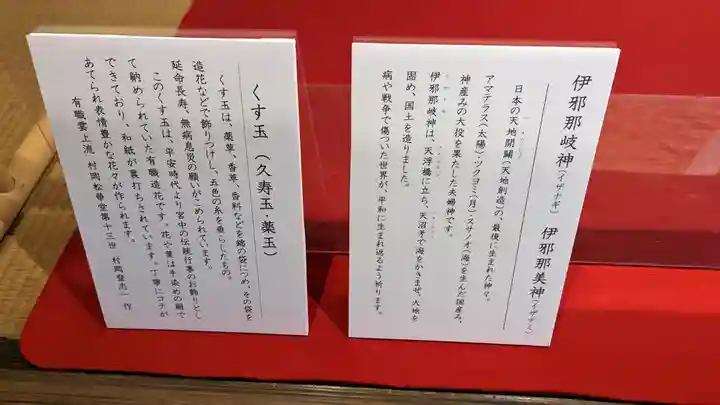 くす玉（久寿玉・薬玉）
くす玉は、薬草、香草、香料などを錦の袋につめ、その袋を
造花などで飾りつけし、五色の糸を垂らしたもの。
延命長寿、無病息災の願いがこめられています。
このくす玉は、平安時代より宮中の伝統行事のお飾りとし
て納められていた有職造花です。花や葉は手染めの絹で
できており、和紙が裏打ちされています。丁寧にコテが
あてられ表情豊かな花々が作られます。
有職雲上流 村岡松華堂第十三世 村岡登志一 作
伊邪那岐神（イザナギ） 伊邪那美神（イザナミ）
日本の天地開闢（天地創造）の、最後に生まれた神々。
アマテラス（太陽）・ツクヨミ（月）・スサノオ（海）を生んだ国産み、
神産みの大役を果たした夫婦神です。
伊邪那岐神は、天浮橋に立ち、天沼矛で海をかきまぜ、大地を
固め、国土を造りました。
病や戦争で傷ついた世界が、平和に生まれ返るよう祈ります。